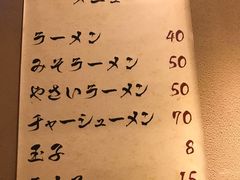 メニュー
ラーメン 40
みそラーメン 50
やさいラーメン 50
チャーシューメン 70
玉子 8
15